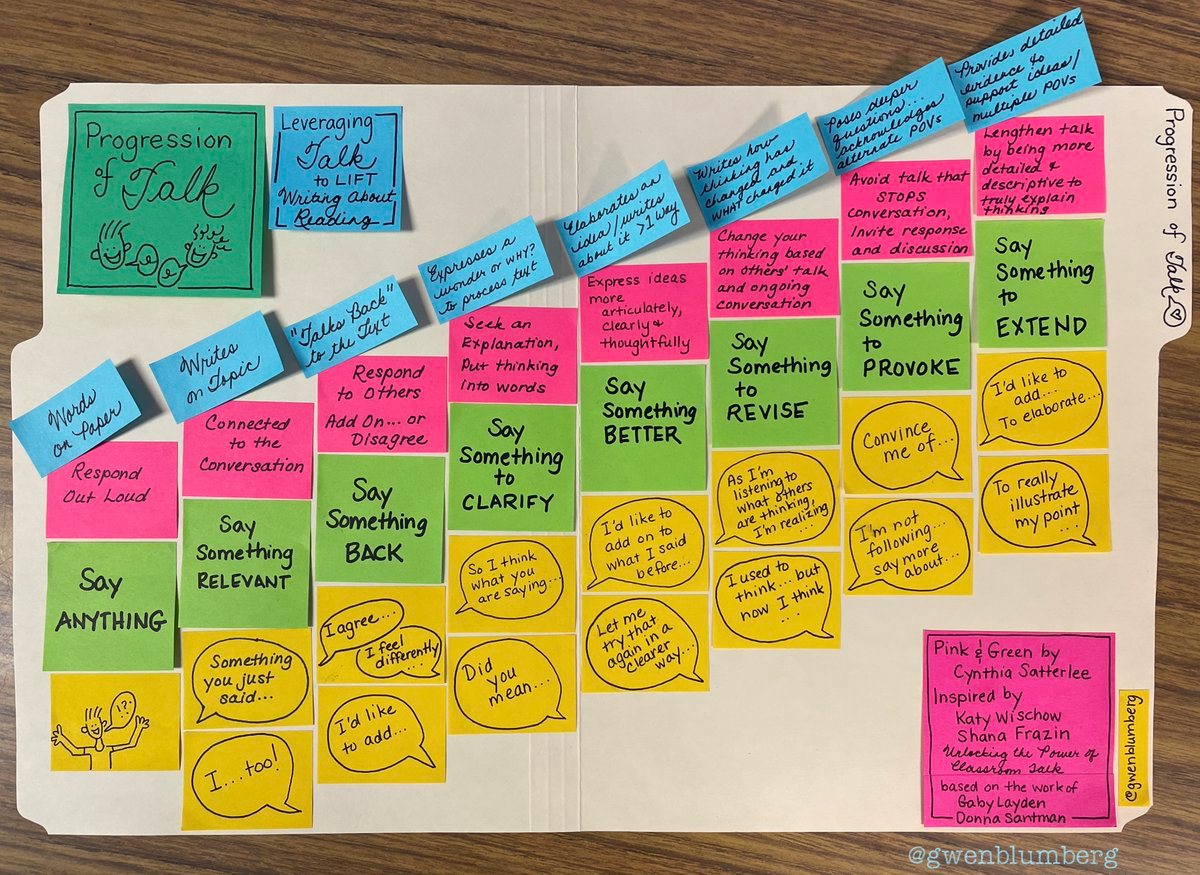 Progression
of Talk
Leveraging
Talk
to LIFT
Writing About
Reading
Words
on Paper
Respond
Out Loud
Say
ANYTHING
!?
Writes
on Topic
Connected
to the
Conversation
Say
Something
RELEVANT
Something
you just
said...
I....too!
"Talks Back"
to the Text
Respond
to Others
Add On... or
Disagree
Say
Something
BACK
I agree...
I feel
differently...
I'd like
to add...
Expresses a
wonder or WHY?
to process text
Seek an
Explanation,
Put thinking
into words
Say
Something
to
CLARIFY
So I think
what you
are saying...
Did
you
mean...
Elaborates an
idea/writes
about it >1 way
Express ideas
more
articulately,
clearly &
thoughtfully
Say
Something
BETTER
I'd like to
add on to
what I said
before...
Let me
try that
again in a
clearer
way...
Writes how
thinking has
changed and
WHAT changed it
Change your
thinking based
on others' talk
and ongoing
conversation
Say
Something
to
REVISE
As I'm
listening to
what others
are thinking,
I'm realizing
...
I used to
think... but
now I think
..
Poses deeper
questions...
acknowledges
alternate POVs
Avoid talk that
STOPS
conversation,
Invite response
and discussion
Say
Something
to
PROVOKE
Convince
me of...
I'm not
following...
say more
about...
Provides detailed
evidence to
support ideas/
multiple POVs
Lengthen talk
by being more
detailed &
descriptive to
truly explain
thinking
Say
Something
to
EXTEND
I'd like to
add....
To elaborate...
To really
illustrate
my point
...
Progression of Talk
Pink & Green by
Cynthia Satterlee
Inspired by
Katy Wischow
Shana Frazin
Unlocking the Power of
Classroom Talk
based on the work of
Gaby Layden
Donna Santman
@gwenblumberg
@gwenblumberg